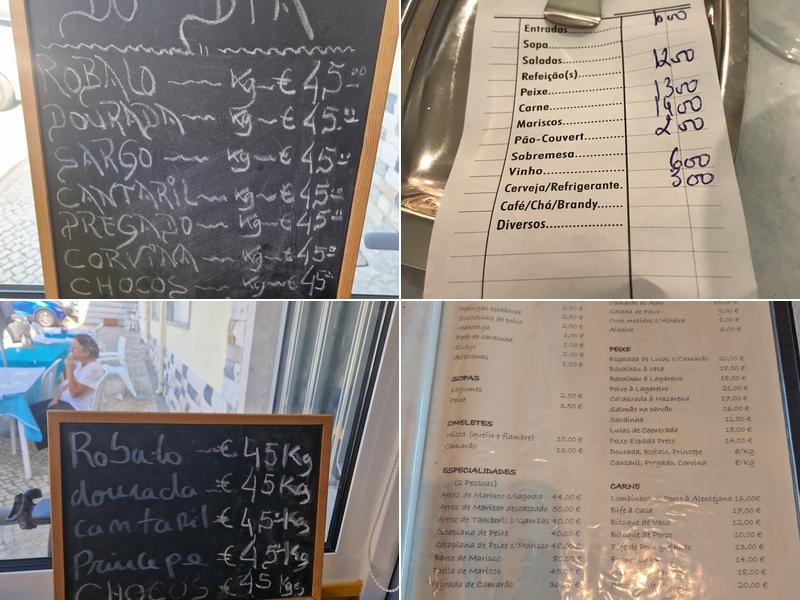 DO DIA
ROBALO — Kg — € 45.00
DOURADA Kg — € 45.00
SARGO — Kg — € 45.00
CANTARIL — Kg — € 45.00
PREGADO — Kg — € 45.00
CORVINA — Kg — € 45.00
CHOCOS — Kg — € 45.00
Entradas
Sopa
Saladas 12 50
Refeição(s)
Peixe
Carne
Mariscos
Pão-Couvert
Sobremesa
Vinho
Cerveja/Refrigerante.
Café/Chá/Brandy
Diversos
Robalo — € 45 Kg
dourada — € 45 Kg
cantaril € 45 Kg
Principe € 45 Kg
CHOCOS € 45 Kgs
Petingas escabeche 2,50 €
Saladinha de polvo 2,50 €
Manteiga 1,00 €
Paté de sardinha 1,00 €
Queijo 2,00 €
Azeitonas 1,00 €
SOPAS
Legumes 2,50 €
Peixe 3,50 €
OMELETES
Mista (queijo e fiambre) 10,00 €
Camarão 13,00 €
ESPECIALIDADES
(2 Pessoas)
Arroz de Marisco c/lagosta 44,00 €
Arroz de Marisco descascado 50,00 €
Arroz de Tamboril c/Gambas 40,00 €
Cataplana de Peixe 40,00 €
Cataplana de Peixe c/Marisco 48,00 €
Barco de Marisco
Paella de Marisco
Feijoada de Camarão
Camarão ao Alho
Salada de Polvo 9,00 €
Ovos mexidos c/Alheira 8,00 €
Alheira 6,00 €
PEIXE
Espetada de Lulas c/Camarão 20,00 €
Bacalhau à casa 18,50 €
Bacalhau à Lagareiro 18,50 €
Polvo à Lagareiro 21,00 €
Caldeirada à Nazarena 17,00 €
Salmão no carvão 16,00 €
Sardinha 11,50 €
Lulas de Coentrada 18,00 €
Peixe-Espada Preto 14,00 €
Dourada, Robalo, Príncepe €/Kg
Cantaril, Pregado, Corvina €/Kg
CARNE
Lombinhos de Porco à Alentejana 16,00€
Bife à Casa 17,00 €
Bitoque de Vaca 12,00 €
Bitoque de Porco 10,00 €
Bife de Peru 13,00 €
14,00 €
18,00 €
20,00 €